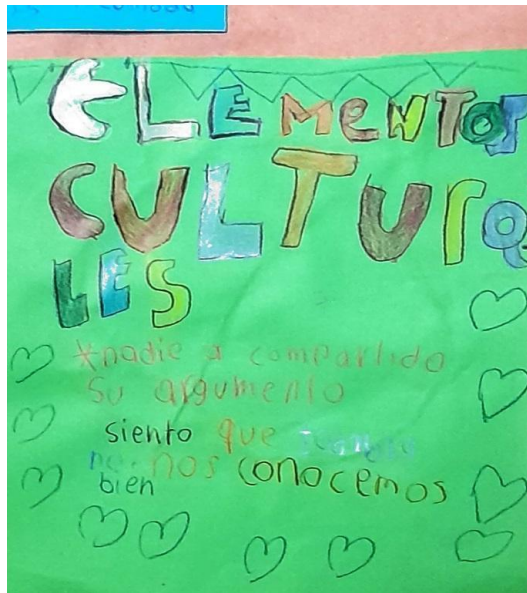 ELEMENTOS
CULTURA
LES
*nadie a compartido
su argumento
siento que
no nos conocemos
bien